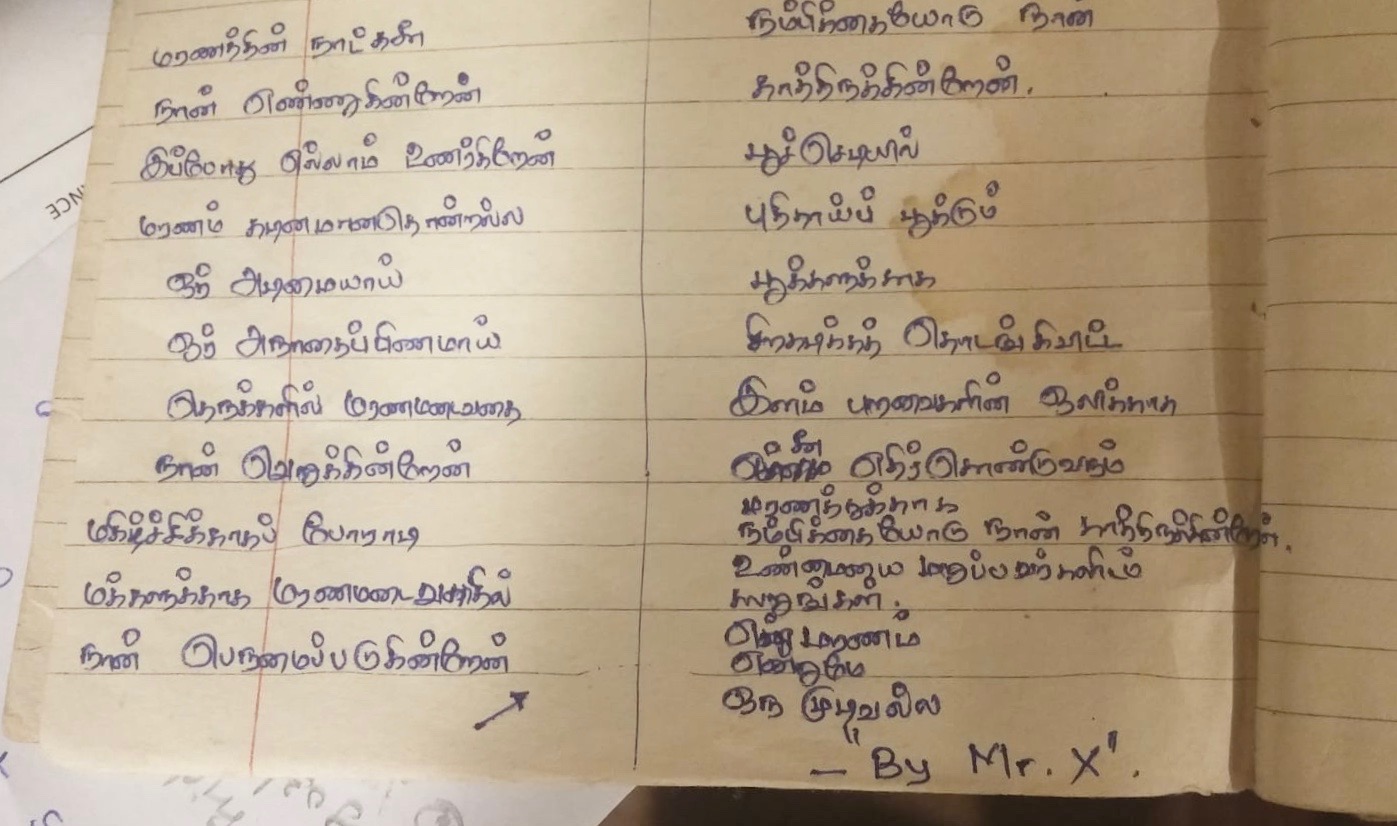 மரணத்தின் நாட்களை
நான் எண்ணுகின்றேன்
இப்போது எல்லாம் உணர்கிறேன்
மரணம் கடினமானதொன்றல்ல
ஓர் அடிமையாய்
ஓர் அநாதைப்பிணமாய்
தெருக்களில் மரணமடைவதை
நான் வெறுக்கின்றேன்
மகிழ்ச்சிக்காகப் போராடி
மக்களுக்காக மரணமடைவதில்
நான் பெருமைப்படுகின்றேன்
நம்பிக்கையோடு நான்
காத்திருக்கின்றேன்.
பூச்செடியில்
புதிதாய்ப் பூக்கும்
பூக்களுக்காக
சிறகடிக்கத் தொடங்கிவிட்ட
இளம் பறவைகளின் ஒலிக்காக
என்னை எதிர்கொண்டுவரும்
மரணத்துக்காக
நம்பிக்கையோடு நான் காத்திருக்கின்றேன்.
உண்மையை மறுப்பவர்களிடம்
கூறுங்கள்.
மரணம்
என்றுமே
ஒரு முடிவல்ல
– "By Mr. X".
NCE